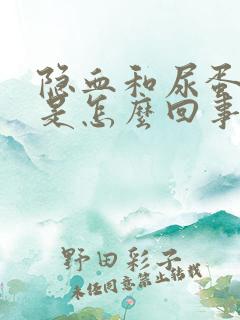 隐血和尿蛋
是怎麼回事
野田彩子
未经同意禁止转载